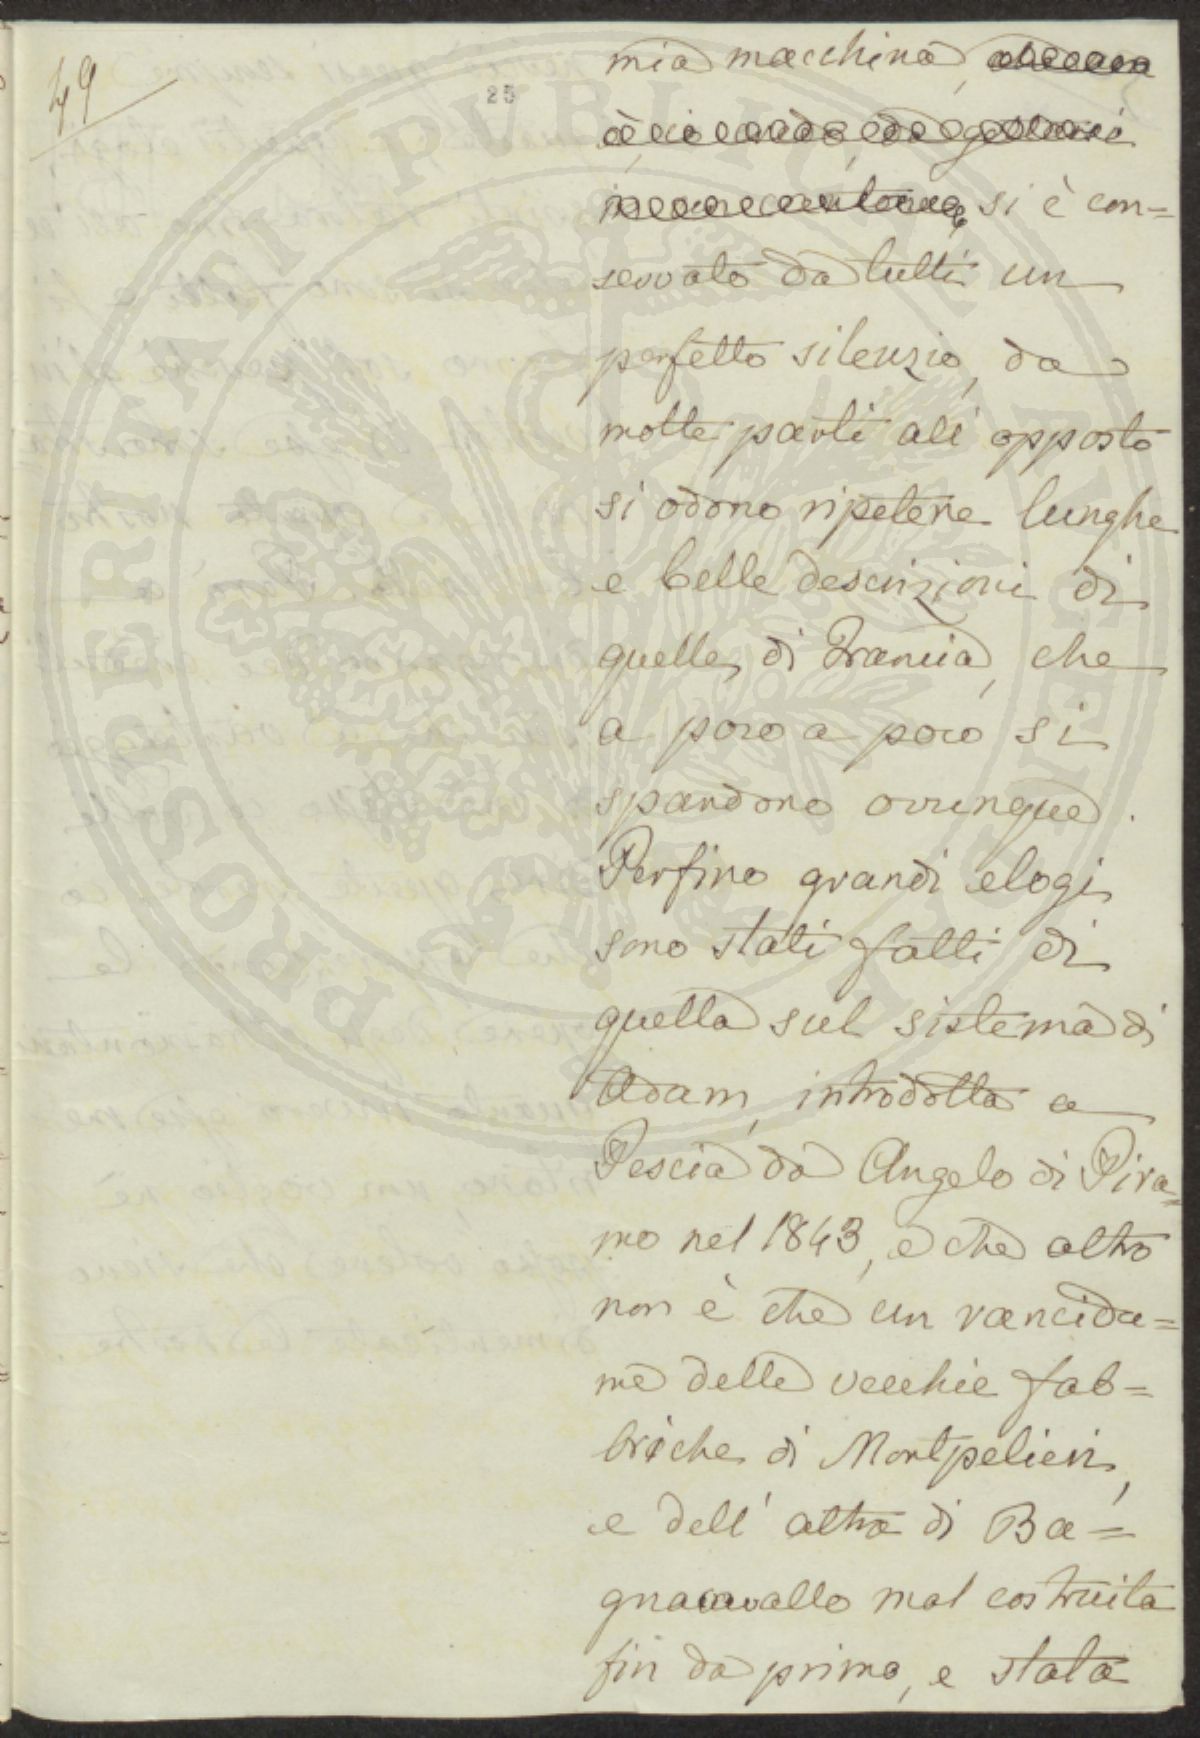 49
25
PROSPERITASI PVBLICAE AVGENDAE
mia macchina,
si è con=
servato da tutti un
perfetto silenzio, da
molte parti all' opposto
si odono ripetere lunghe
e belle descrizioni di
quelle di Francia, che
a poco a poco si
spandono ovunque.
Perfino grandi elogi
sono stati fatti di
quella sul sistema di
Adam, introdotta a
Pescia da Angelo di Pira=
mo nel 1843, e che altro
non è che un rancidu=
me delle vecchie fab=
briche di Montpelieri,
e dell' altra di Ba=
gnacavallo mal costruita
fin da prima, e stata